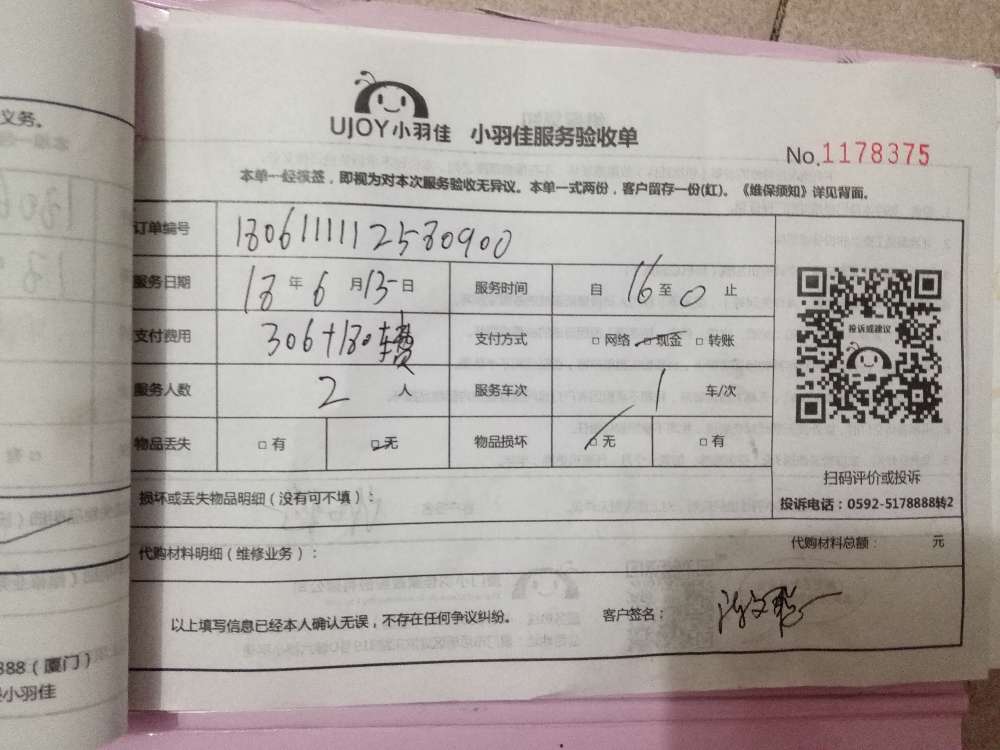 义务。
UJOY小羽佳 小羽佳服务验收单
No.1178375
本单一经签签，即视为对本次服务验收无异议。本单一式两份，客户留存一份(红)。《维保须知》详见背面。
订单编号 1806111112580900
服务日期 18 年 6 月 13 日 服务时间 自 16 至 0 止
支付费用 306+180车费 支付方式 □ 网络 □ 现金 □ 转账
服务人数 2 人 服务车次 1 车/次
物品丢失 □ 有 □ 无 物品损坏 □ 无 □ 有
投诉或建议
扫码评价或投诉
投诉电话：0592-5178888转2
损坏或丢失物品明细（没有可不填）：
代购材料明细（维修业务）： 代购材料总额： 元
以上填写信息已经本人确认无误，不存在任何争议纠纷。 客户签名：
888（厦门）
小羽佳